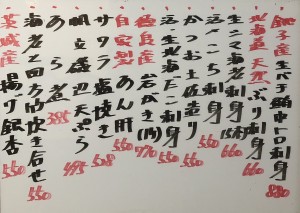 銚子産生バチ鮪中トロ刺身 880
北海道天然ぶり刺身 660
生シマ海老刺身 660
活〆こち刺身 660
かつお土佐造り 550
活〆北海だこ刺身 550
徳島産岩がき(1ヶ) 770
自家製あん肝 550
サワラ塩焼き 528
明立磯天ぷら 495
あら煮 385
海老と四方竹炊き合せ 550
茨城産揚げ銀杏 550